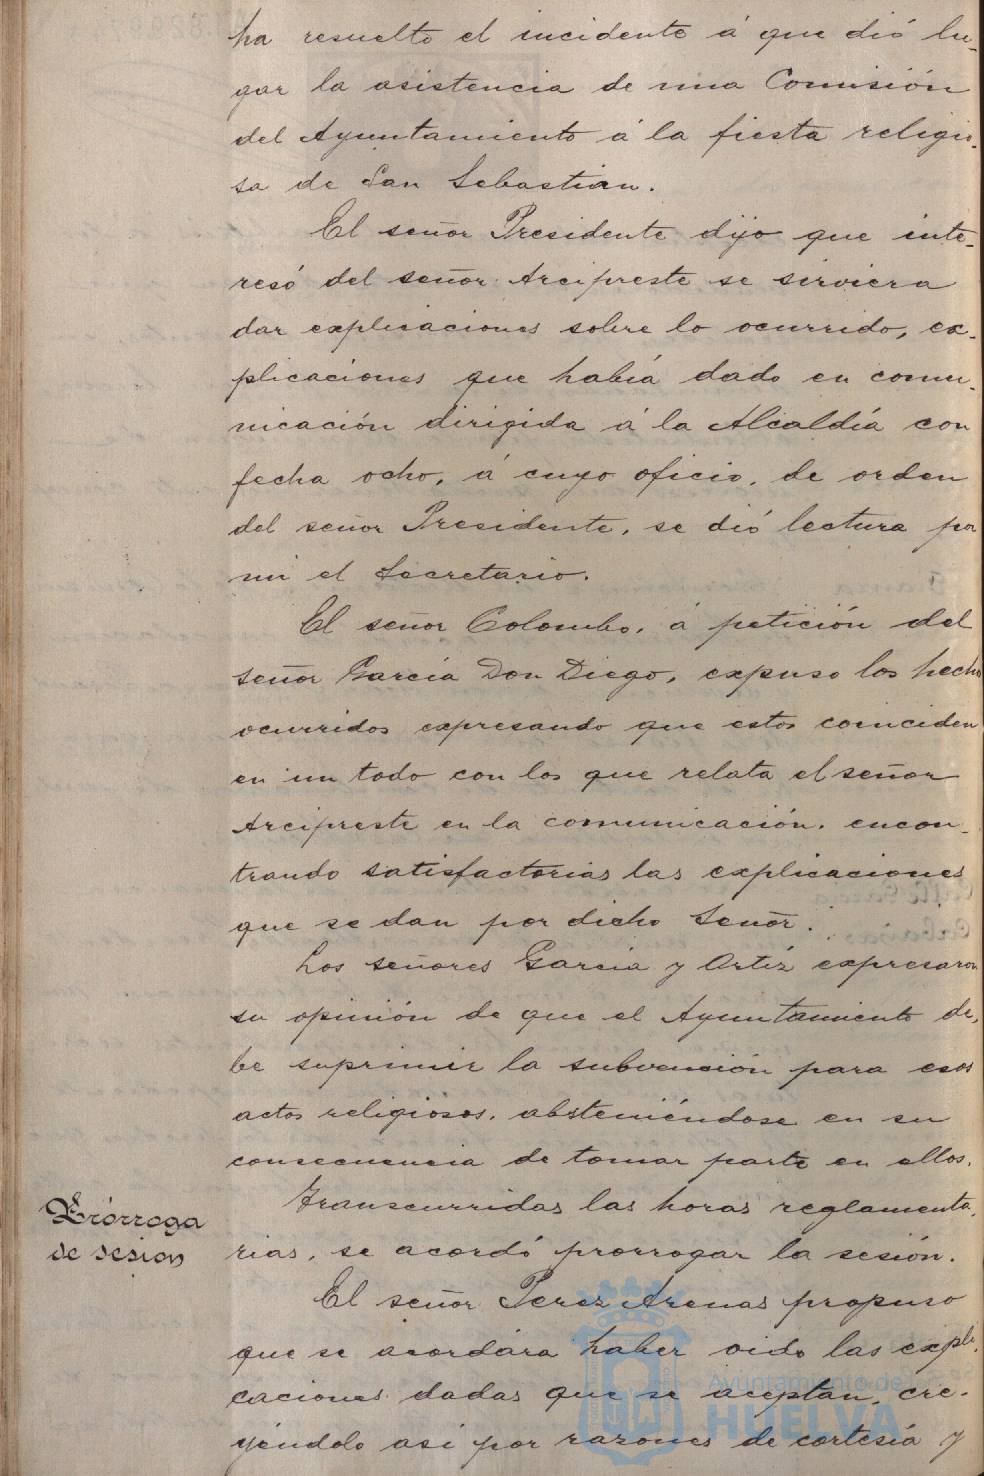 ha resuelto el incidente á que dió lu-
gar la asistencia de una Comisión
del Ayuntamiento á la fiesta religio-
sa de San Sebastian.
El señor Presidente dijo que inte-
resó del señor Arcipreste se sirviera
dar explicaciones sobre lo ocurrido, ex-
plicaciones que había dado en comu-
nicación dirigida á la Alcaldía con
fecha ocho, á cuyo oficio, de orden
del señor Presidente, se dió lectura por
mi el Secretario.
El señor Colombo, á petición del
señor García Don Diego, expuso los hechos
ocurridos expresando que estos coinciden
en un todo con los que relata el señor
Arcipreste en la comunicación, encon-
trando satisfactorias las explicaciones
que se dan por dicho Señor.
Los señores García y Ortiz expresaron
su opinión de que el Ayuntamiento de-
be suprimir la subvención para esos
actos religiosos, absteniéndose en su
consecuencia de tomar parte en ellos.
Prórroga
de sesion
Transcurridas las horas reglamenta-
rias, se acordó prorrogar la sesión.
El señor Perez Arenas propuso
que se acordára haber oido las expli-
caciones dadas que se aceptan, cre-
yéndolo asi por razones de cortesía y
Ayuntamiento de
HUELVA